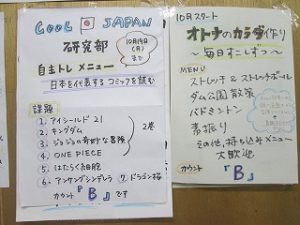 COOL JAPAN
研究部
10月14日
(月)
まで
自主トレ メニュー
日本を代表する コミックを読む
課題
1. アイシールド 21
2. キングダム
3. ジョジョの奇妙な冒険
4. ONE PIECE
5. はたらく細胞
6. アンサングシンデレラ 7. ドラゴン桜
2巻
カウント 「B」です
10月スタート
オトナのカラダ作り
～毎日すこしずつ～
MENU
ストレッチ & ストレッチポール
ダム公園散策
バドミントン
素振り
その他、持ち込みメニュー
大歓迎
カウント
「B」